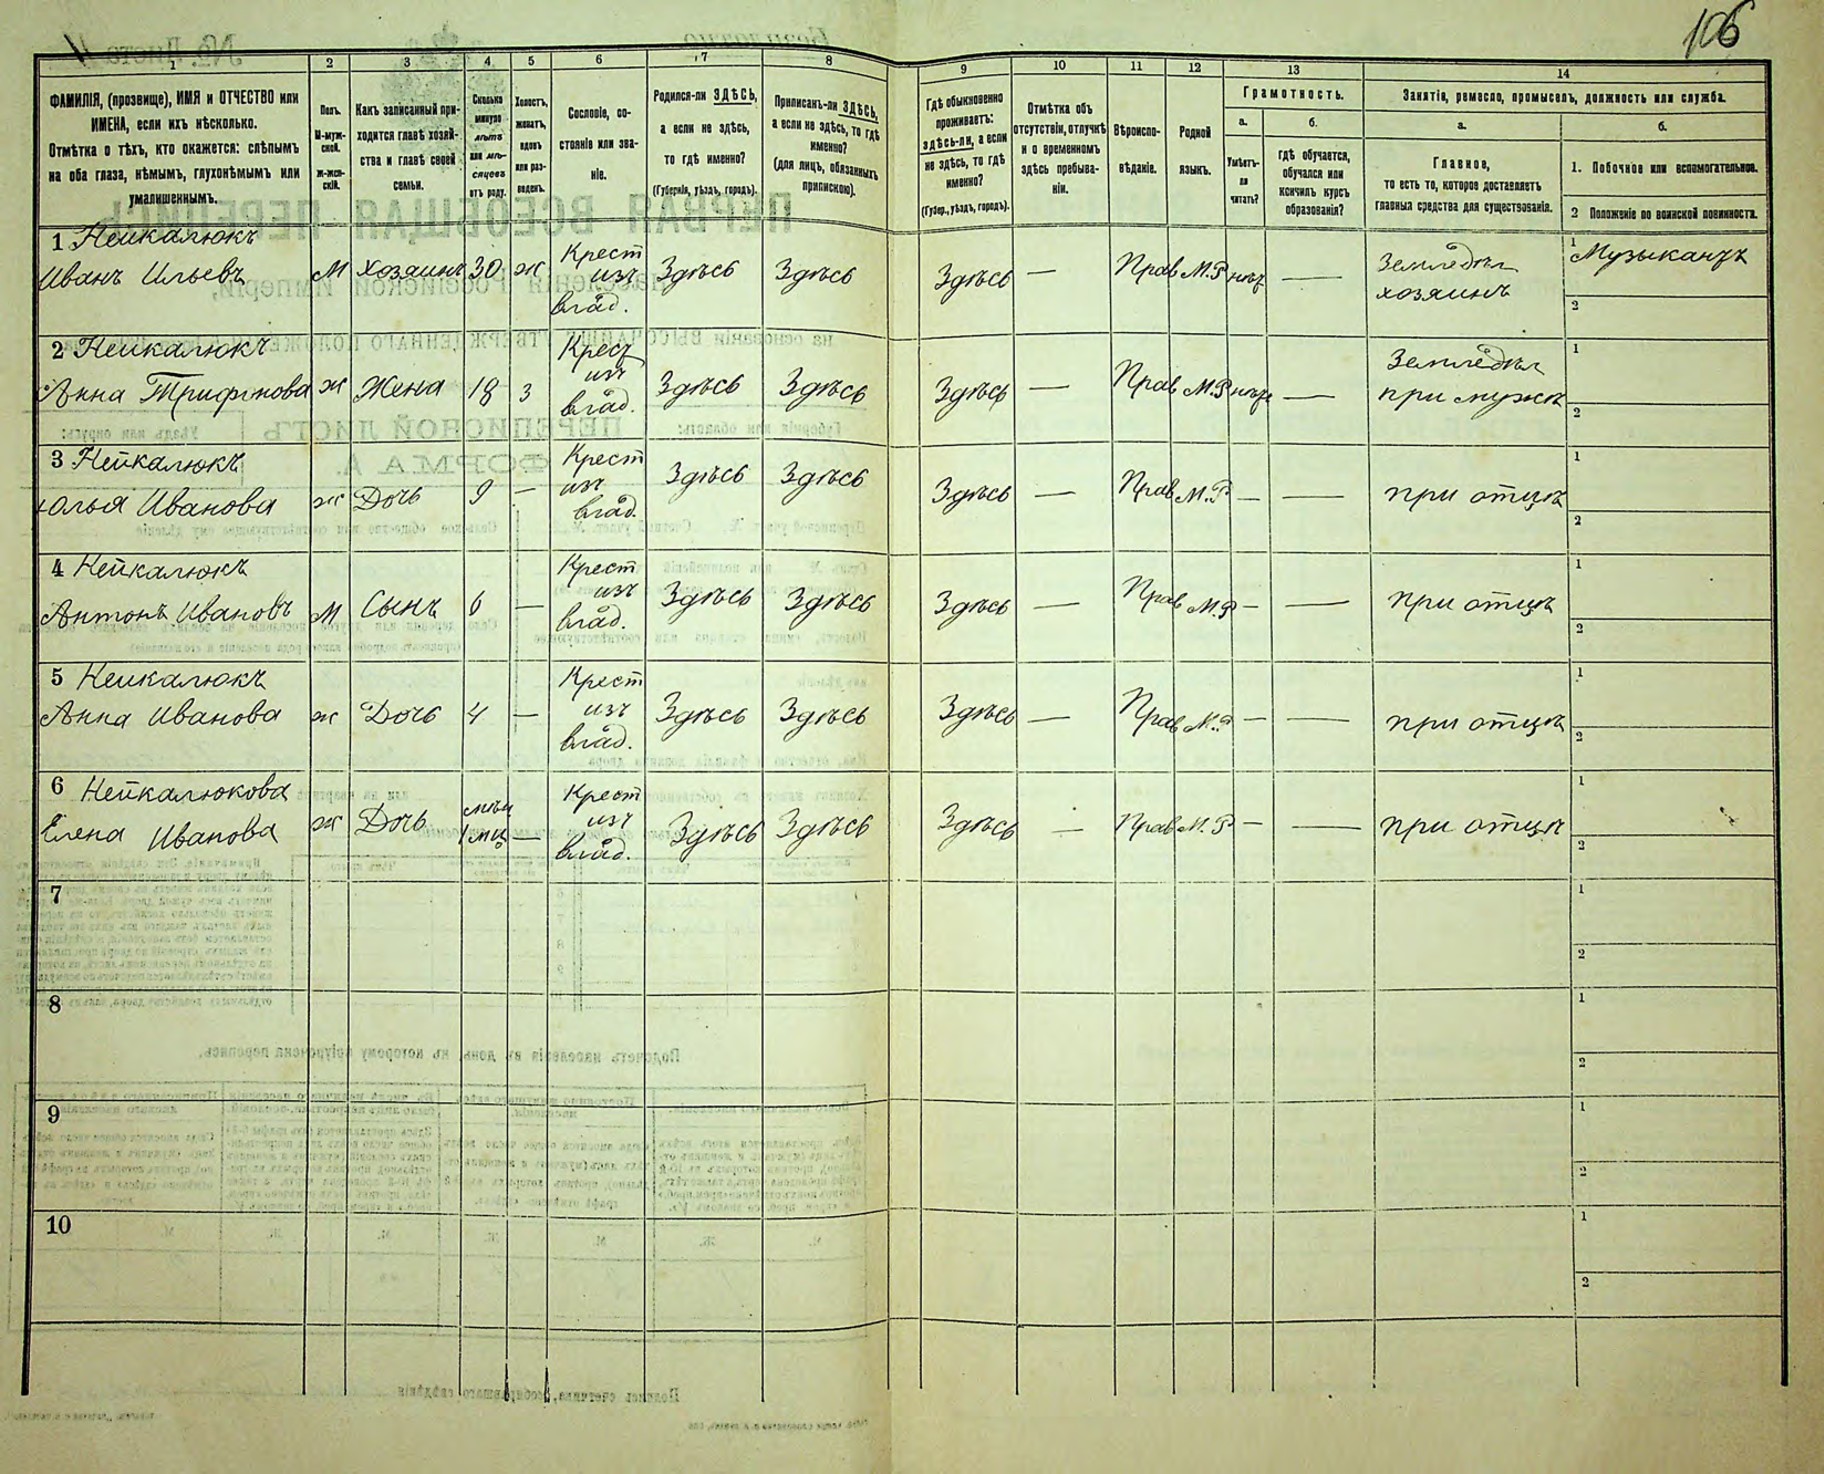 106
1 2 3 4 5 6 7 8 9 10 11 12 13 14
ФАМИЛІЯ, (прозвище), ИМЯ и ОТЧЕСТВО или
ИМЕНА, если ихъ нѣсколько.
Отмѣтка о тѣхъ, кто окажется: слѣпымъ
на оба глаза, нѣмымъ, глухонѣмымъ или
умалишеннымъ.
Полъ.
М-муж-
ской.
ж-жен-
скій.
Какъ записанный при-
ходится главѣ хозяй-
ства и главѣ своей
семьи.
Сколько
минуло
лѣтъ
или мѣ-
сяцевъ
отъ роду.
Холостъ,
женатъ,
вдовъ
или раз-
веденъ.
Сословіе, со-
стояніе или зва-
ніе.
Родился-ли ЗДѢСЬ,
а если не здѣсь,
то гдѣ именно?
(Губернія, уѣздъ, городъ).
Приписанъ-ли ЗДѢСЬ,
а если не здѣсь, то гдѣ
именно?
(для лицъ, обязанныхъ
припискою).
Гдѣ обыкновенно
проживаетъ:
здѣсь-ли, а если
не здѣсь, то гдѣ
именно?
(Губер., уѣздъ, городъ).
Отмѣтка объ
отсутствіи, отлучкѣ
и о временномъ
здѣсь пребыва-
ніи.
Вѣроиспо-
вѣданіе.
Родной
языкъ.
Грамотность.
а.
Умѣетъ-
ли
читать?
б.
гдѣ обучается,
обучался или
кончилъ курсъ
образованія?
Занятія, ремесло, промыселъ, должность или служба.
а.
Главное,
то есть то, которое доставляетъ
главныя средства для существованія.
б.
1. Побочное или вспомогательное.
2 Положеніе по воинской повинности.
1 Нейкалюкъ Крест Земледѣл 1 Музыкантъ
Иванъ Ильевъ М хозяинъ 30 ж изъ Здѣсь Здѣсь Здѣсь — Прав М.Р нѣт — хозяинъ
влад. 2
2 Нейкалюкъ Крест Земледѣл 1
Анна Трифонова ж Жена 18 З изъ Здѣсь Здѣсь Здѣсь — Прав М.Р нѣт — при мужѣ
влад. 2
3 Нейкалюкъ Крест 1
Юлья Иванова ж Дочь 9 — изъ Здѣсь Здѣсь Здѣсь — Прав М.Р — — при отцѣ
влад. 2
4 Нейкалюкъ Крест 1
Антонъ Ивановъ М Сынъ 6 — изъ Здѣсь Здѣсь Здѣсь — Прав М.Р — — при отцѣ
влад. 2
5 Нейкалюкъ Крест 1
Анна Иванова ж Дочь 4 — изъ Здѣсь Здѣсь Здѣсь — Прав М.Р — — при отцѣ
влад. 2
6 Нейкалюкова Крест 1
Елена Иванова ж Дочь — изъ Здѣсь Здѣсь Здѣсь — Прав М.Р — — при отцѣ
влад. 2
7 1
2
8 1
2
9 1
2
10 1
2